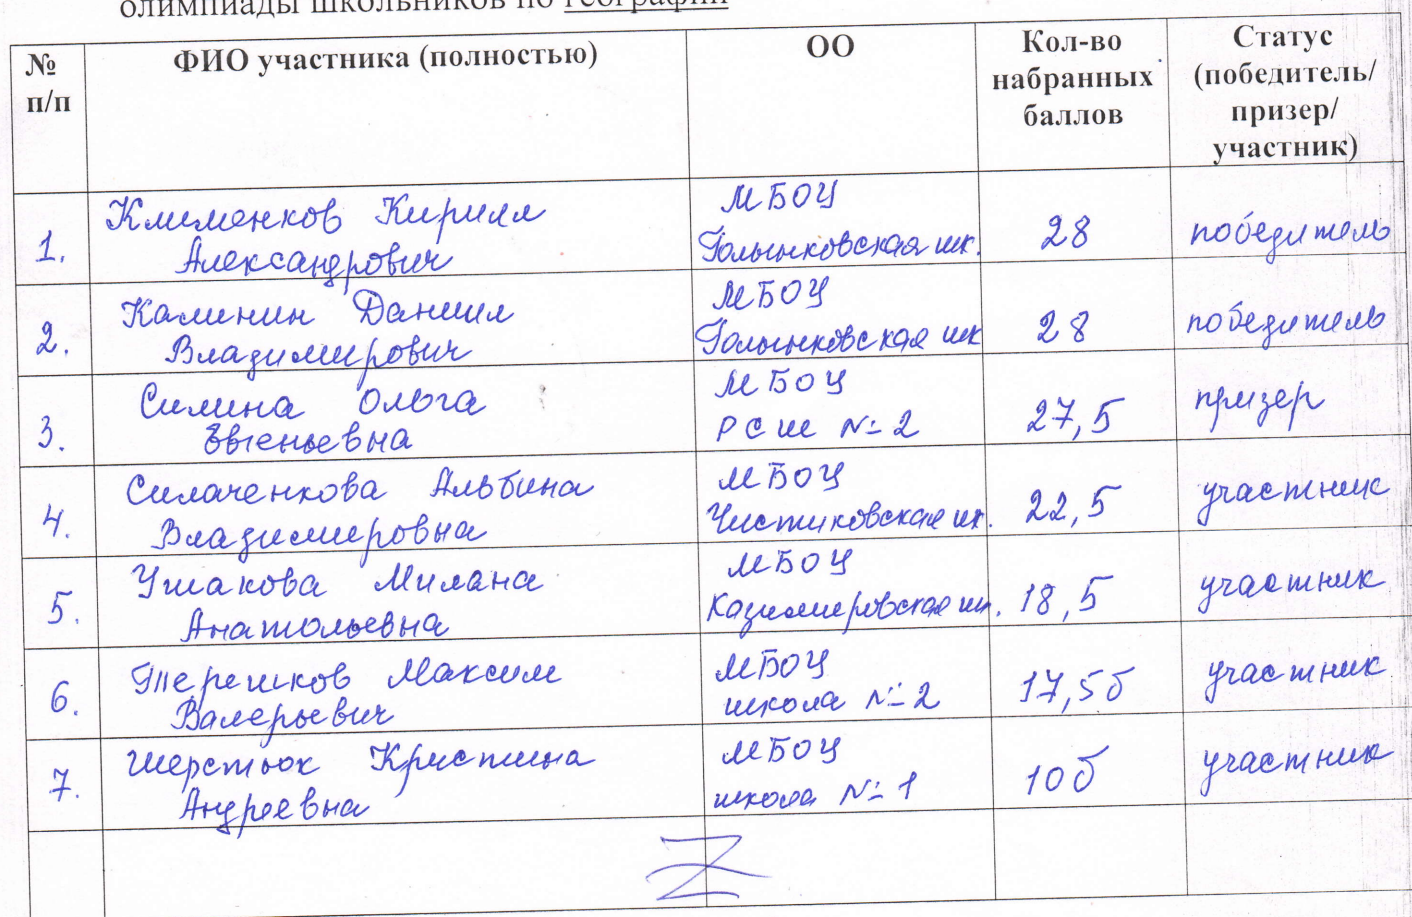 олимпиады школьников по географии
№ п/п
ФИО участника (полностью)
ОО
Кол-во набранных баллов
Статус (победитель/ призер/ участник)
1.
Клименков Кирилл
Александрович
МБОУ
Голынковская шк.
28
победитель
2.
Калинин Даниил
Владимирович
МБОУ
Голынковская шк
28
победитель
3.
Силина Ольга
Евгеньевна
МБОУ
РСШ № 2
27,5
призер
4.
Силаченкова Альбина
Владимировна
МБОУ
Чистиковская шк.
22,5
участник
5.
Ушакова Милана
Анатольевна
МБОУ
Казимировская шк.
18,5
участник
6.
Терешков Максим
Валерьевич
МБОУ
школа № 2
17,5б
участник
7.
Шерстюк Кристина
Андреевна
МБОУ
школа № 1
10б
участник